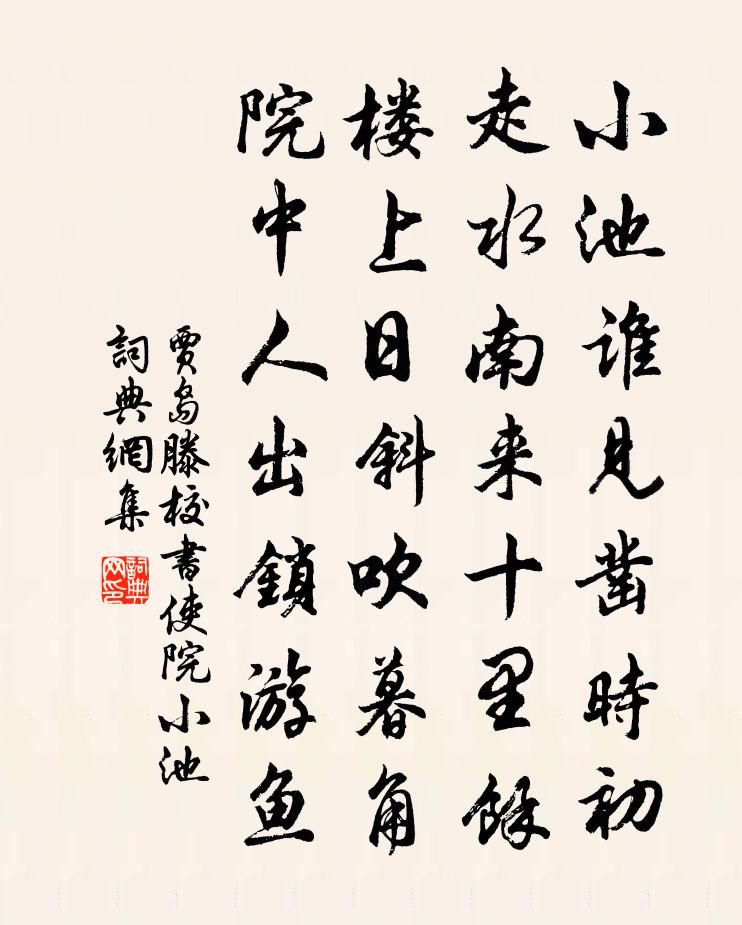 小池誰見凿時初
走水南来十里餘
楼上日斜吹暮角
院中人出鎖游鱼
賈島滕校書使院小池
詞典網集
詞典网印